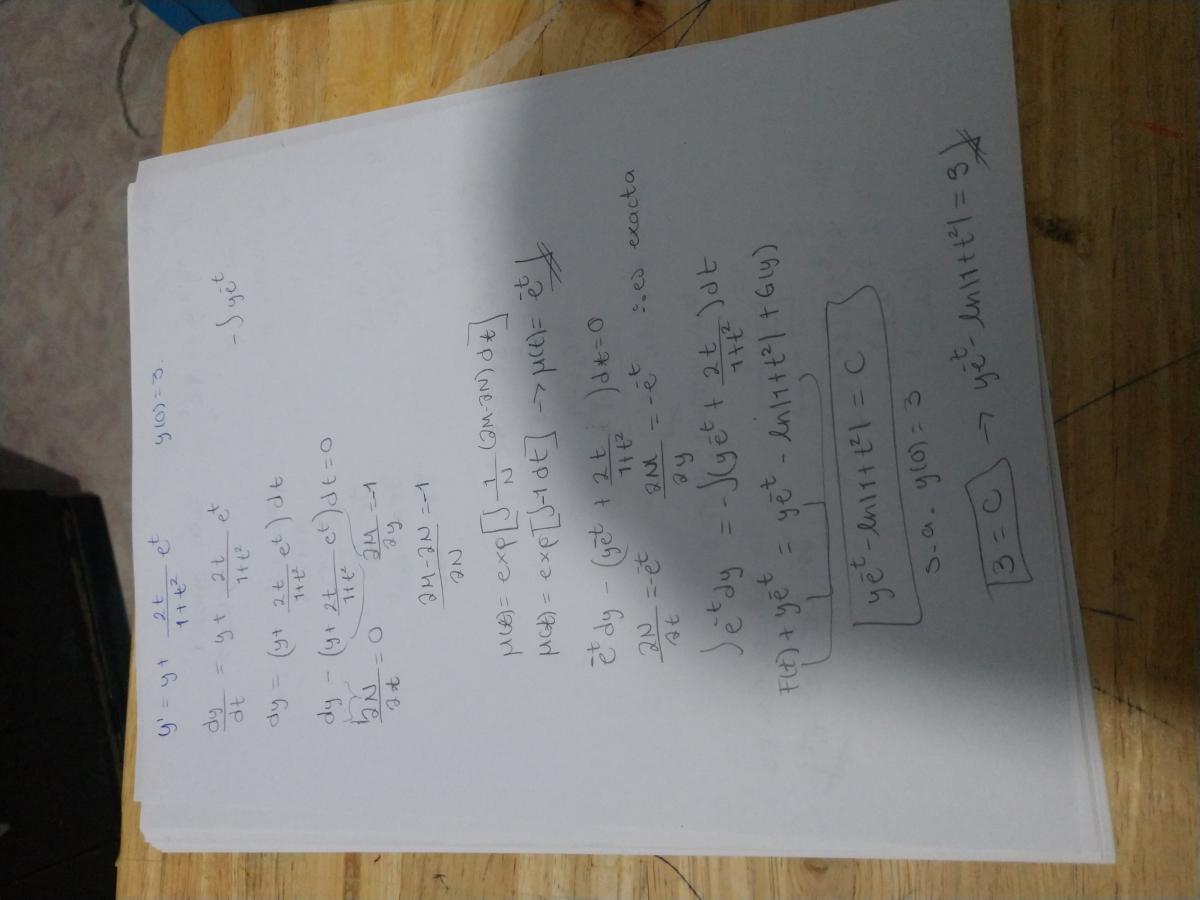 y' = y + 2t/(1+t²) e^t    y(0) = 3
dy/dt = y + 2t/(1+t²) e^t    -∫ye^-t
dy = (y + 2t/(1+t²) e^t) dt
dy - (y + 2t/(1+t²) e^t) dt = 0
∂N/∂t = 0    ∂M/∂y = -1
∂M-∂N/∂N = -1
μ(t) = exp[∫ 1/N (∂M-∂N) dt]
μ(t) = exp[∫-1 dt] → μ(t) = e^-t
e^-t dy - (ye^-t + 2t/(1+t²)) dt = 0
∂N/∂t = -e^-t    ∂M/∂y = -e^-t    ∴ es exacta
∫e^-t dy = -∫(ye^-t + 2t/(1+t²)) dt
F(t) + ye^-t = ye^-t - ln|1+t²| + G(y)
ye^-t - ln|1+t²| = C
s.a. y(0) = 3
3 = C → ye^-t - ln|1+t²| = 3